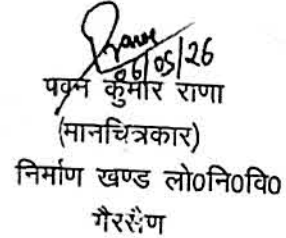 06/05/26
पवन कुमार राणा
(मानचित्रकार)
निर्माण खण्ड लो०नि०वि०
गैरसैंण